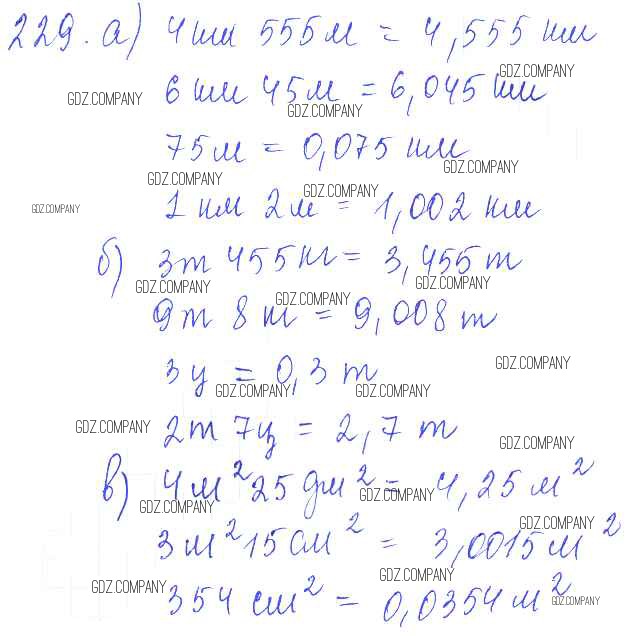 229. а) 4 км 555 м = 4,555 км
GDZ.COMPANY
GDZ.COMPANY
6 км 45 м = 6,045 км
GDZ.COMPANY
75 м = 0,075 км
GDZ.COMPANY
GDZ.COMPANY
GDZ.COMPANY
GDZ.COMPANY
1 км 2 м = 1,002 км
б) 3т 455 кг = 3,455 т
GDZ.COMPANY
GDZ.COMPANY
GDZ.COMPANY
9т 8 кг = 9,008 т
GDZ.COMPANY
3 ц = 0,3 т
GDZ.COMPANY
GDZ.COMPANY
GDZ.COMPANY
2т 7ц = 2,7 т
GDZ.COMPANY
в) 4 м² 25 дм² = 4,25 м²
GDZ.COMPANY
GDZ.COMPANY
GDZ.COMPANY
3 м² 15 см² = 3,0015 м²
GDZ.COMPANY
GDZ.COMPANY
354 см² = 0,0354 м²
GDZ.COMPANY